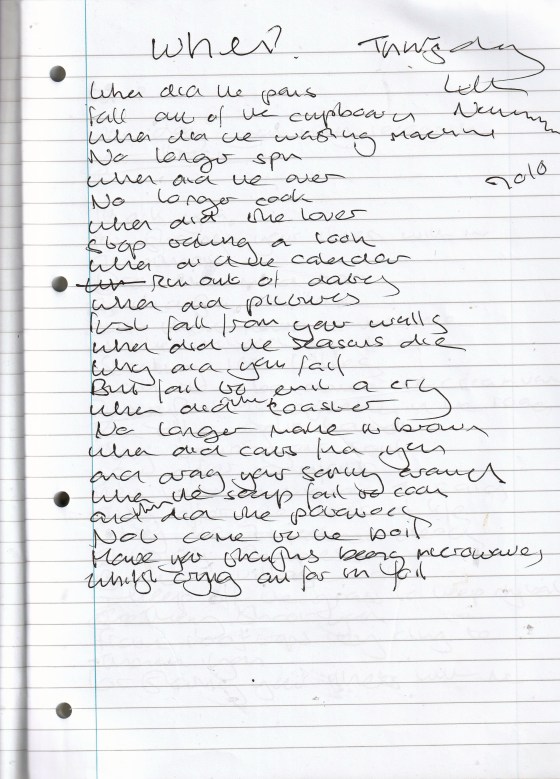 When? Thursday
When did the pans
fall out of the cupboard
When did the washing machine
No longer spin
When did the oven
No longer cook
When did the lover
Stop a look
When did the calendar
Run out of dates
When did pictures
fall from your walls
When did the seasons die
Why did you fail
But fail to emit a cry
When did the toaster
No longer make it brown
When did you
and drag your around
When the soup fail to cook
and when did the
Not come to the boil
Have your thoughts being microwaved
Whilst crying out for in foil
2010